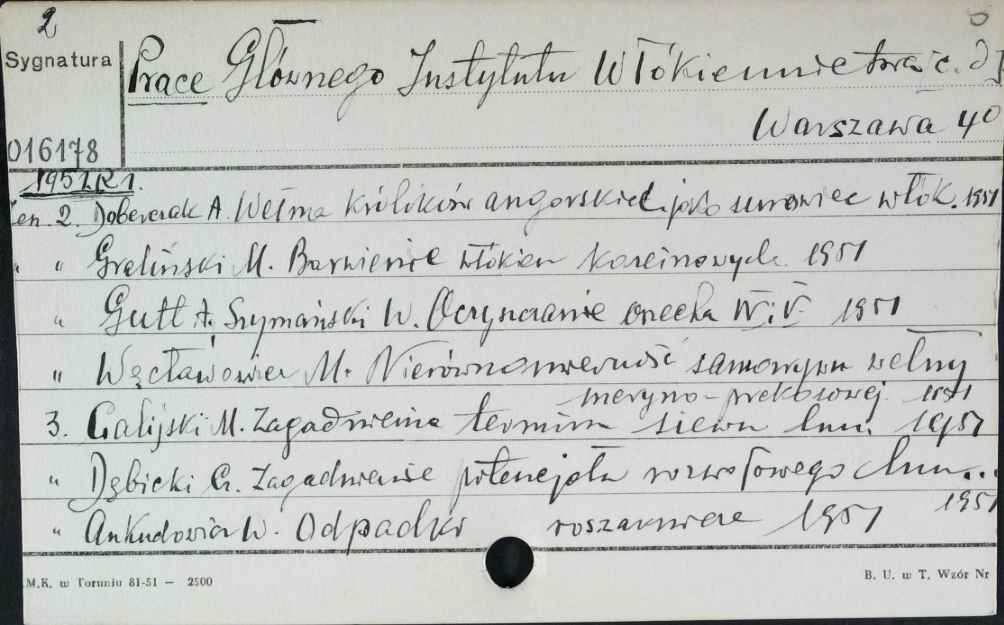 2
Sygnatura
Prace Głównego Instytutu Włókiennictwa c. d.
Warszawa 40
016178
1951 R 1.
zen. 2. A. Wełna królików angorskich jako surowiec włók. 1951
" " Greliński M. Barwienie włókien kazeinowych. 1951
" Gutt A. Szymański W. Oczyszczanie orzecha IV i V 1951
" Węcławowicz M. Nierównomierność samoczynn wełny
meryno-prekosowej. 1951
3. Galijski M. Zagadnienie terminu siewu lnu. 1951
" Dębicki G. Zagadnienie potencjału rozwojowego lnu..
1951
" Ankudowicz W. Odpadki roszarnicze 1951
M.K. w Toruniu 81-51 — 2500
B. U. w T. Wzór Nr